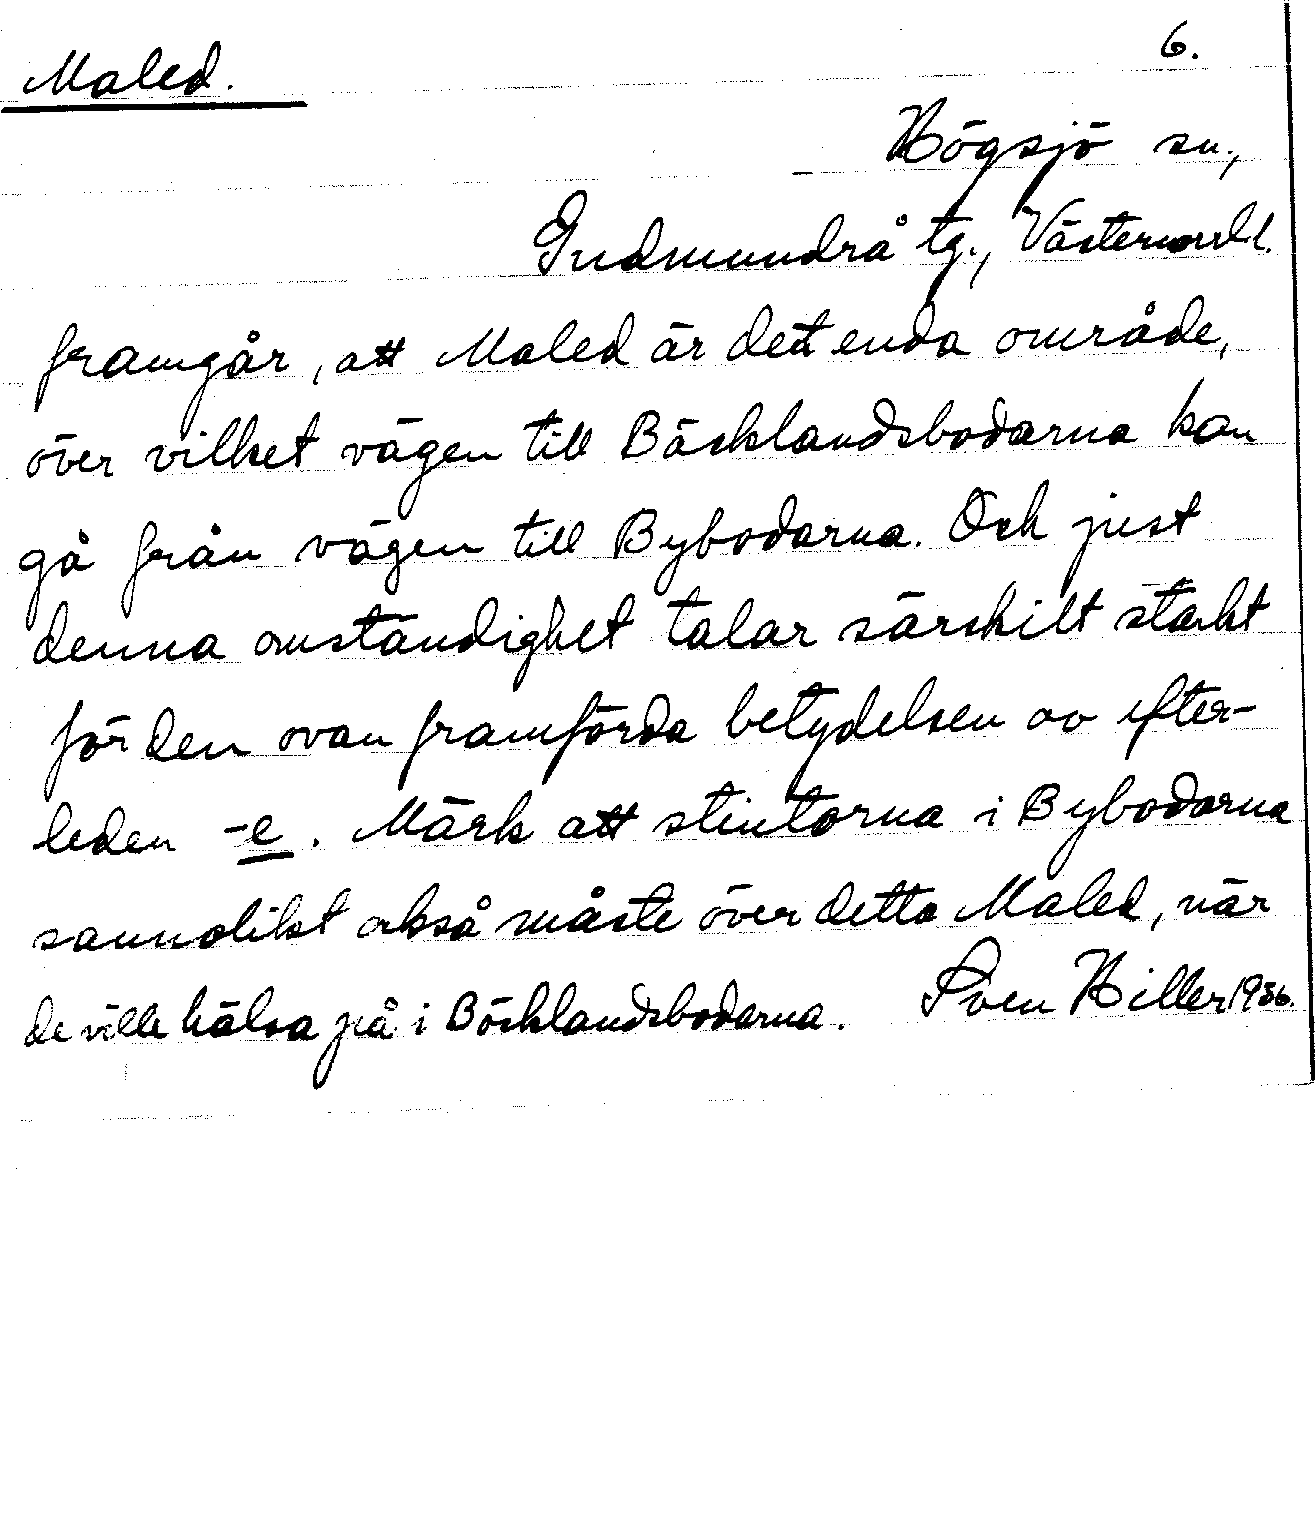 Maled.
6.
Högsjö sn.,
Gudmundrå tg., Västernorrl l.
framgår, att Maled är det enda område,
över vilket vägen till Bäcklandsbodarna kan
gå från vägen till Bybodarna. Och just
denna omständighet talar särskilt starkt
för den ovan framförda betydelsen av efter-
leden -e. Märk att stintorna i Bybodarna
sannolikt också måste över detta Maled, när
de ville hälsa på i Bäcklandsbodarna. Sven Hiller 1936.